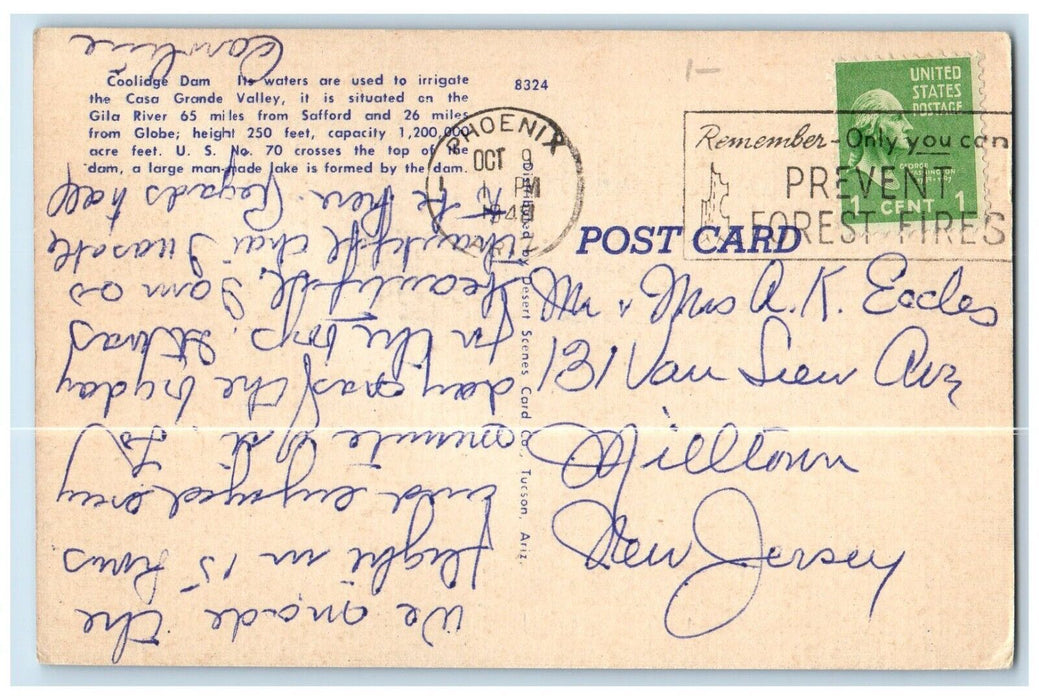 Coolidge Dam Its waters are used to irrigate
the Casa Grande Valley, it is situated on the
Gila River 65 miles from Safford and 26 miles
from Globe; height 250 feet, capacity 1,200,000
acre feet. U. S. No. 70 crosses the top of the
dam, a large man-made lake is formed by the dam.
8324
PHOENIX
OCT 9
PM
UNITED
STATES
POSTAGE
GEORGE
WASHINGTON
1 CENT 1
Remember-Only you can
PREVENT
FOREST FIRES
POST CARD
Distributed by Desert Scenes Card Co., Tucson, Ariz.
Mr & Mrs A. K. Eccles
131 Van Liew Ave
Milltown
New Jersey
We made the
flight in 15 hours
and enjoyed every
minute of it. To
day was the by day
in the
beautiful. I am as
thankful that I was able
to be here. Regards to all
Caroline